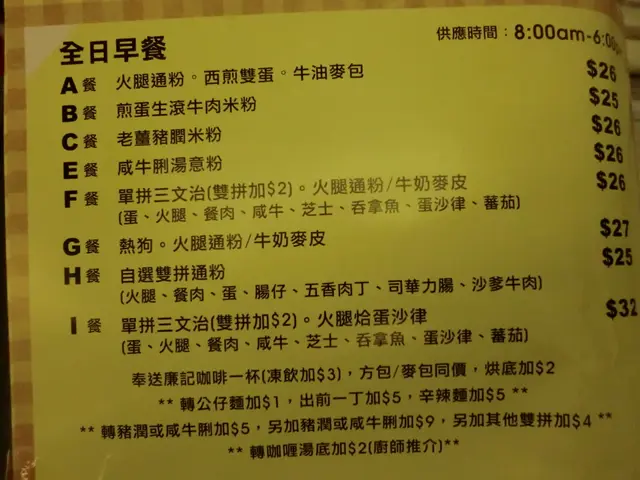 全日早餐
供應時間：8:00am-6:00
A餐 火腿通粉。西煎雙蛋。牛油麥包 $26
B餐 煎蛋生滾牛肉米粉 $25
C餐 老薑豬膶米粉 $26
E餐 咸牛脷湯意粉 $26
F餐 單拼三文治(雙拼加$2)。火腿通粉/牛奶麥皮 $26
(蛋、火腿、餐肉、咸牛、芝士、吞拿魚、蛋沙律、蕃茄)
G餐 熱狗。火腿通粉/牛奶麥皮 $27
H餐 自選雙拼通粉 $25
(火腿、餐肉、蛋、腸仔、五香肉丁、司華力腸、沙爹牛肉)
I餐 單拼三文治(雙拼加$2)。火腿烚蛋沙律 $32
(蛋、火腿、餐肉、咸牛、芝士、吞拿魚、蛋沙律、蕃茄)
奉送廉記咖啡一杯(凍飲加$3)，方包/麥包同價，烘底加$2
** 轉公仔麵加$1，出前一丁加$5，辛辣麵加$5 **
** 轉豬膶或咸牛脷加$5，另加豬膶或咸牛脷加$9，另加其他雙拼加$4 **
** 轉咖喱湯底加$2(廚師推介)**